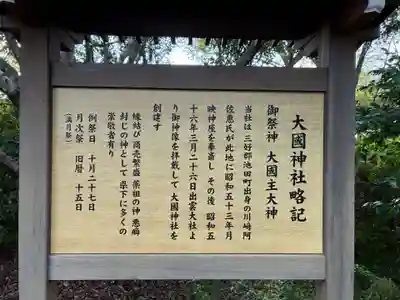 大國神社略記
御祭神 大國主大神
当社は三好郡池田町出身の川崎阿
佐恵氏が此地に昭和五十三年月
映神座を奉斎し その後 昭和五
十六年三月二十六日出雲大社よ
り御神像を拝戴して 大國神社を
創建す
縁結び 商売繁盛 薬祖の神 悪病
封じの神として 県下に多くの
崇敬者有り
例祭日 十月二十七日
月次祭 旧暦 十五日
(満月祭)